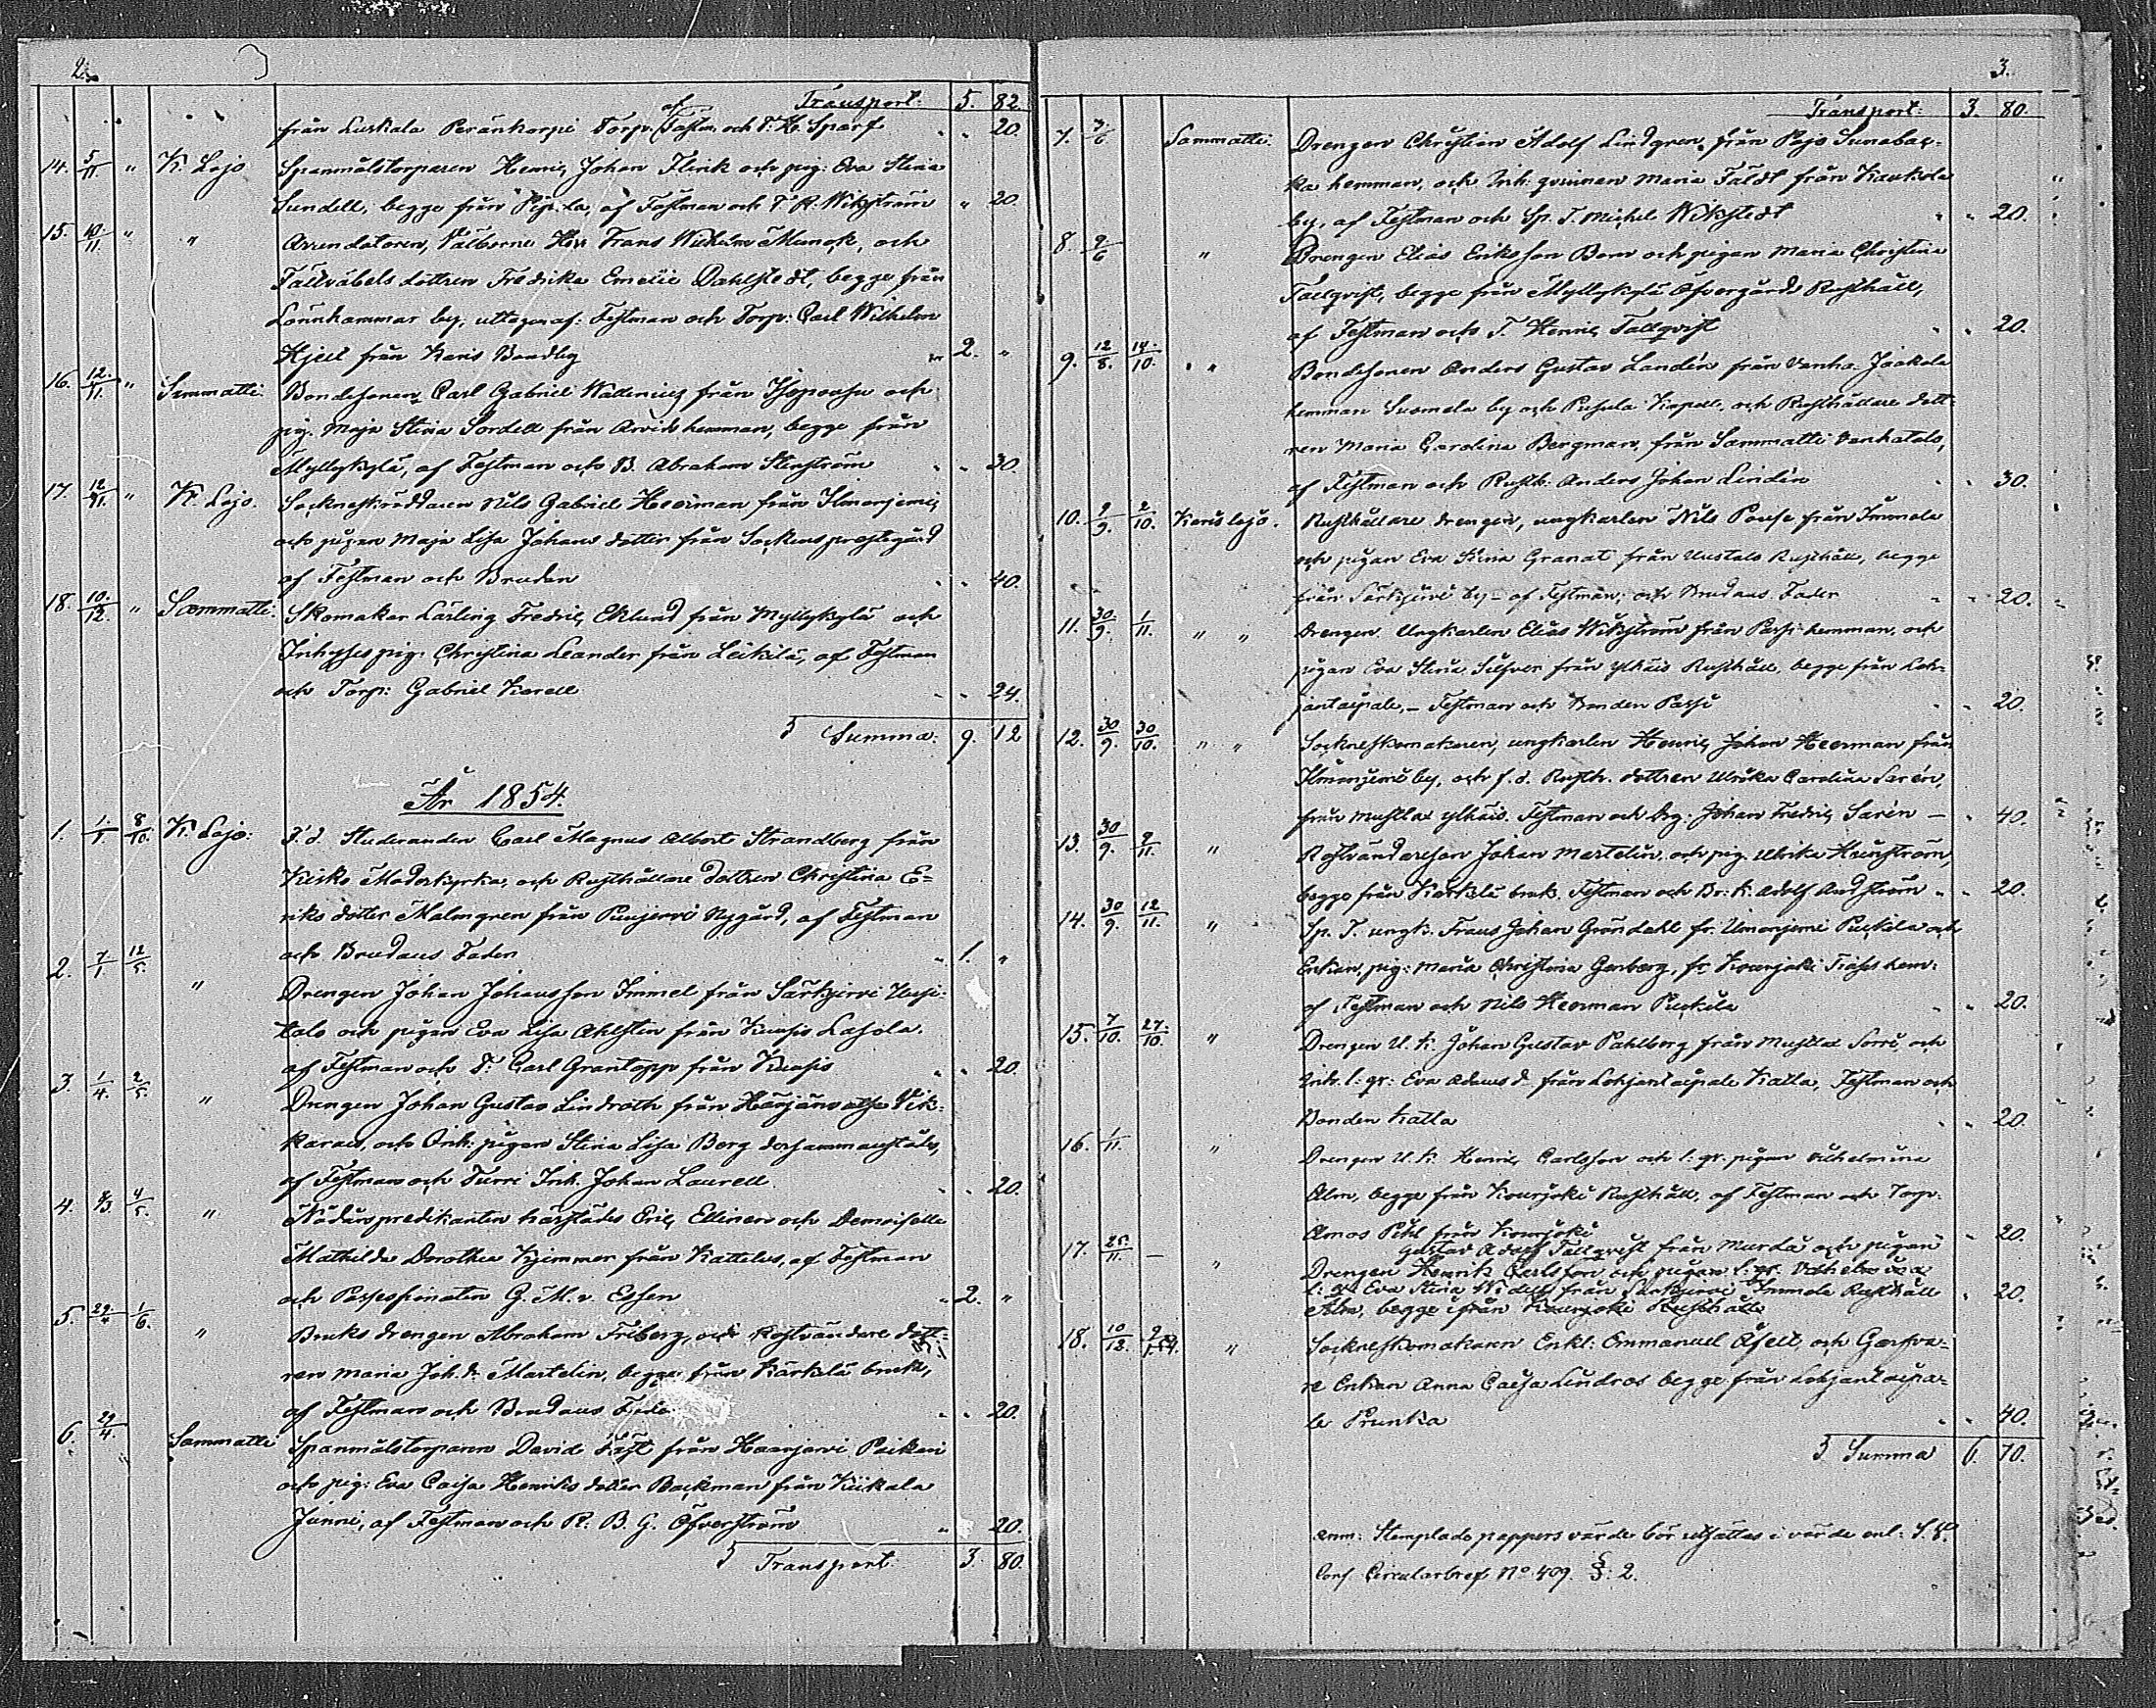 2.
Transport: 5. 82.
från Luskala Peränkorpi Torp. af Fästm. och T. H. Sparf " " 20.
14. 5/11 " K. Lojo Spanmålstorparen Henric Johan Flink och pig: Eva Stina
Sundell, begge från af Fästman och T. A. Wikström " 20.
15. 10/11 " " Arrendatoren, Välborne Herr Frans Wilhelm Munck, och
Fältväbels dottren Fredrika Emelie Dahlstedt, begge från
Lönnhammar by, uttagen af: Festman och Torp: Carl Wilhelm
Hjelt från Karis Bondby 2. "
16. 12/11 " Sammatti. Bondesonen Carl Gabriel Wallenius från och
pig. Maja Stina Sordell från Arvids hemman, begge från
Myllykylä, af Festman och B. Abraham Stenström " " 30.
17. 12/11 " K. Lojo. Sockneskräddaren Nils Gabriel Heerman från Ilmonjemi,
och pigan Maja Lisa Johans dotter från Sockens prestgård
af Festman och Bruden " " 40.
18. 10/12 " Sammatti: Skomakar Lärling Fredric Eklund från Myllykylä och
Inhyses pig: Christina Leander från Leikilä, af Festman
och Torp: Gabriel Karell " " 24.
Summa: 9. 12
År 1854.
1. 1/1 8/10 K. Lojo: F. d. Studeranden Carl Magnus Albert Strandberg från
Kisko Moderkyrka, och Rusthållare Dottren Christina E-
riks dotter Malmgren från Puujervi Nygård, af Festman
och Brudens Fader " 1. "
2. 7/1 12/5 " Drengen Johan Johansson Immel från Särkjervi Uusi-
talo och pigan Eva Lisa Ahlsten från Kuusis Lasola.
af Festman och T: Carl Grantopp från Kuusis " " 20.
3. 1/4 2/5 " Drengen Johan Gustav Lindroth från Härjänvatsa Vik-
karais, och Inh: pigan Stina Lisa Berg dersammastädes,
af Festman och Turri Inh. Johan Laurell " " 20.
4. 4/5 " Nådårspredikanten härstädes Eric Ellinen och Demoiselle
Mathilda Dorothea Kjimmer från Kattelus, af Festman
och Possessionaten G. M. v. Essen " 2. "
5. 29/4 1/6 " Bruks drengen Abraham Friberg, och Rostvändare dott-
ren Maria Joh. d: Martelin, begge från Kärkelä bruk,
af Festman och Brudens Fader " " 20.
6. 29/4 Sammatti Spanmålstorparen David Fäst från Haarjärvi Paikkari
och pig: Eva Caisa Henriks dotter Backman från Kiikala
Junni, af Festman och R: B. G. Öfverström " 20.
Transport: 3. 80.
3.
Transport: 3. 80.
7. 7/6 Sammatti. Drengen Christian Adolf Lindgren från Pojo Sunnabac-
ka hemman, och Inh: qvinnan Maria Fäldt från Kaukola
by, af Festman och Sp. T. Michel Wikstedt " " 20.
8. 9/6 " Drengen Elias Eriksson Born och pigan Maria Christina
Tallqvist, begge från Myllykylä Öfvergårds Rusthåll,
af Festman och T. Henric Tallqvist " " 20.
9. 12/8 14/10 " " Bondesonen Anders Gustav Landén från Vanha Jaakola
hemman Suomela by och Pusula Kapell, och Rusthållare dott-
ren Maria Carolina Bergman, från Sammatti Vanhatalo,
af Festman och Rusth: Anders Johan Lindén " " 30.
10. 9/9 2/10 Karislojo. Rusthållare drengen, ungkarlen Nils Pouse från Immola
och pigan Eva Stina Granat från Uustalo Rusthåll, begge
från Särkjervi by - af Festman, och Brudens Fader " " 20.
11. 30/9 1/11 " " Drengen Ungkarlen Elias Wikström från Passi hemman, och
pigan Eva Stina Silfver från Ylhäis Rusthåll, begge från Loh-
jantaipale, - Festman och Bonden Passi " " 20.
12. 30/9 30/10 " " Sockneskomakaren, ungkarlen Henric Johan Heerman från
Ilmonjemi by, och f. d. Rusth. dottren Ulrika Carolina Sarén,
från Mustlax Ylhäis. Festman och Drg: Johan Fredric Sarén - " 40.
13. 30/9 9/11 " Rostvändareson Johan Martelin, och pig. Ulrika
begge från Kärkelä bruk. Festman och Br: K. Adolf " " 20.
14. 30/9 12/11 " Sp. T. ungk. Frans Johan Gröndahl fr. Ilmonjemi Puckila och
Enkan, pig: Maria Christina Genberg, fr. Kourjoki hem:
af Festman och Nils Heerman Puckila " " 20.
15. 7/10 27/10 " Drengen U. K. Johan Gustav Pahlberg från Mustlax Sorri, och
Inh. l: qv: Eva Adams d. från Lohjantaipale Kalla, Festman och
Bonden Kalla " " 20.
16. 1/11 " Drengen U. K. Henric Carlsson och l: qv. pigan Vilhelmina
Alm, begge från Kourjoki Rusthåll, af Festman och Torp:
Amos Pihl från Kourjoki " 20.
17. 25/11 - " Gustav Adolf Tallqvist från Murda och pigan
Drengen Henrik Carlsson och pigan l. qv. Vilhelmina
l: qv Eva Stina från Särkjervi Immola Rusthåll " 20.
Alm, begge från Kourjoki Rusthåll
18. 10/12 " Sockneskomakaren Enkl: Emmanuel Åsell, och Garfva-
re Enkan Anna Caisa Lindros begge från Lohjantaipa-
le Prunka " " 40.
Summa 6. 70.
Anm: Stemplade pappers värde bör utsättas i värde enl:
Conf Circularbref No 409. §: 2.